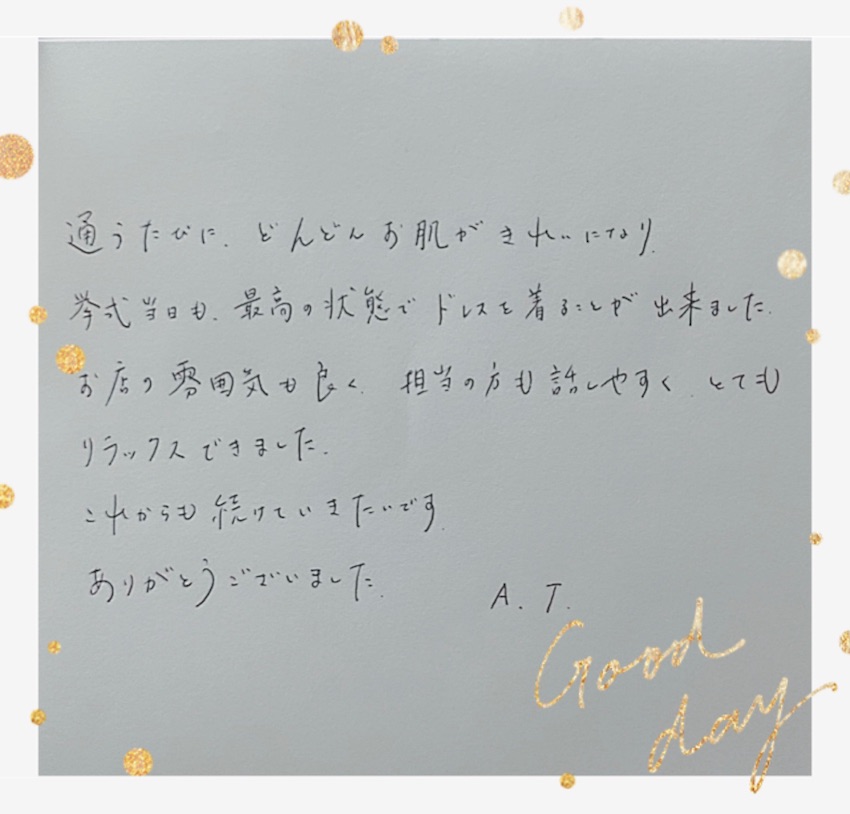 通うたびに、どんどんお肌がきれいになり、
挙式当日も、最高の状態でドレスを着ることが出来ました。
お店の雰囲気も良く、担当の方も話しやすく、とても
リラックスできました。
これからも続けていきたいです。
ありがとうございました。
A. T.
Good
day